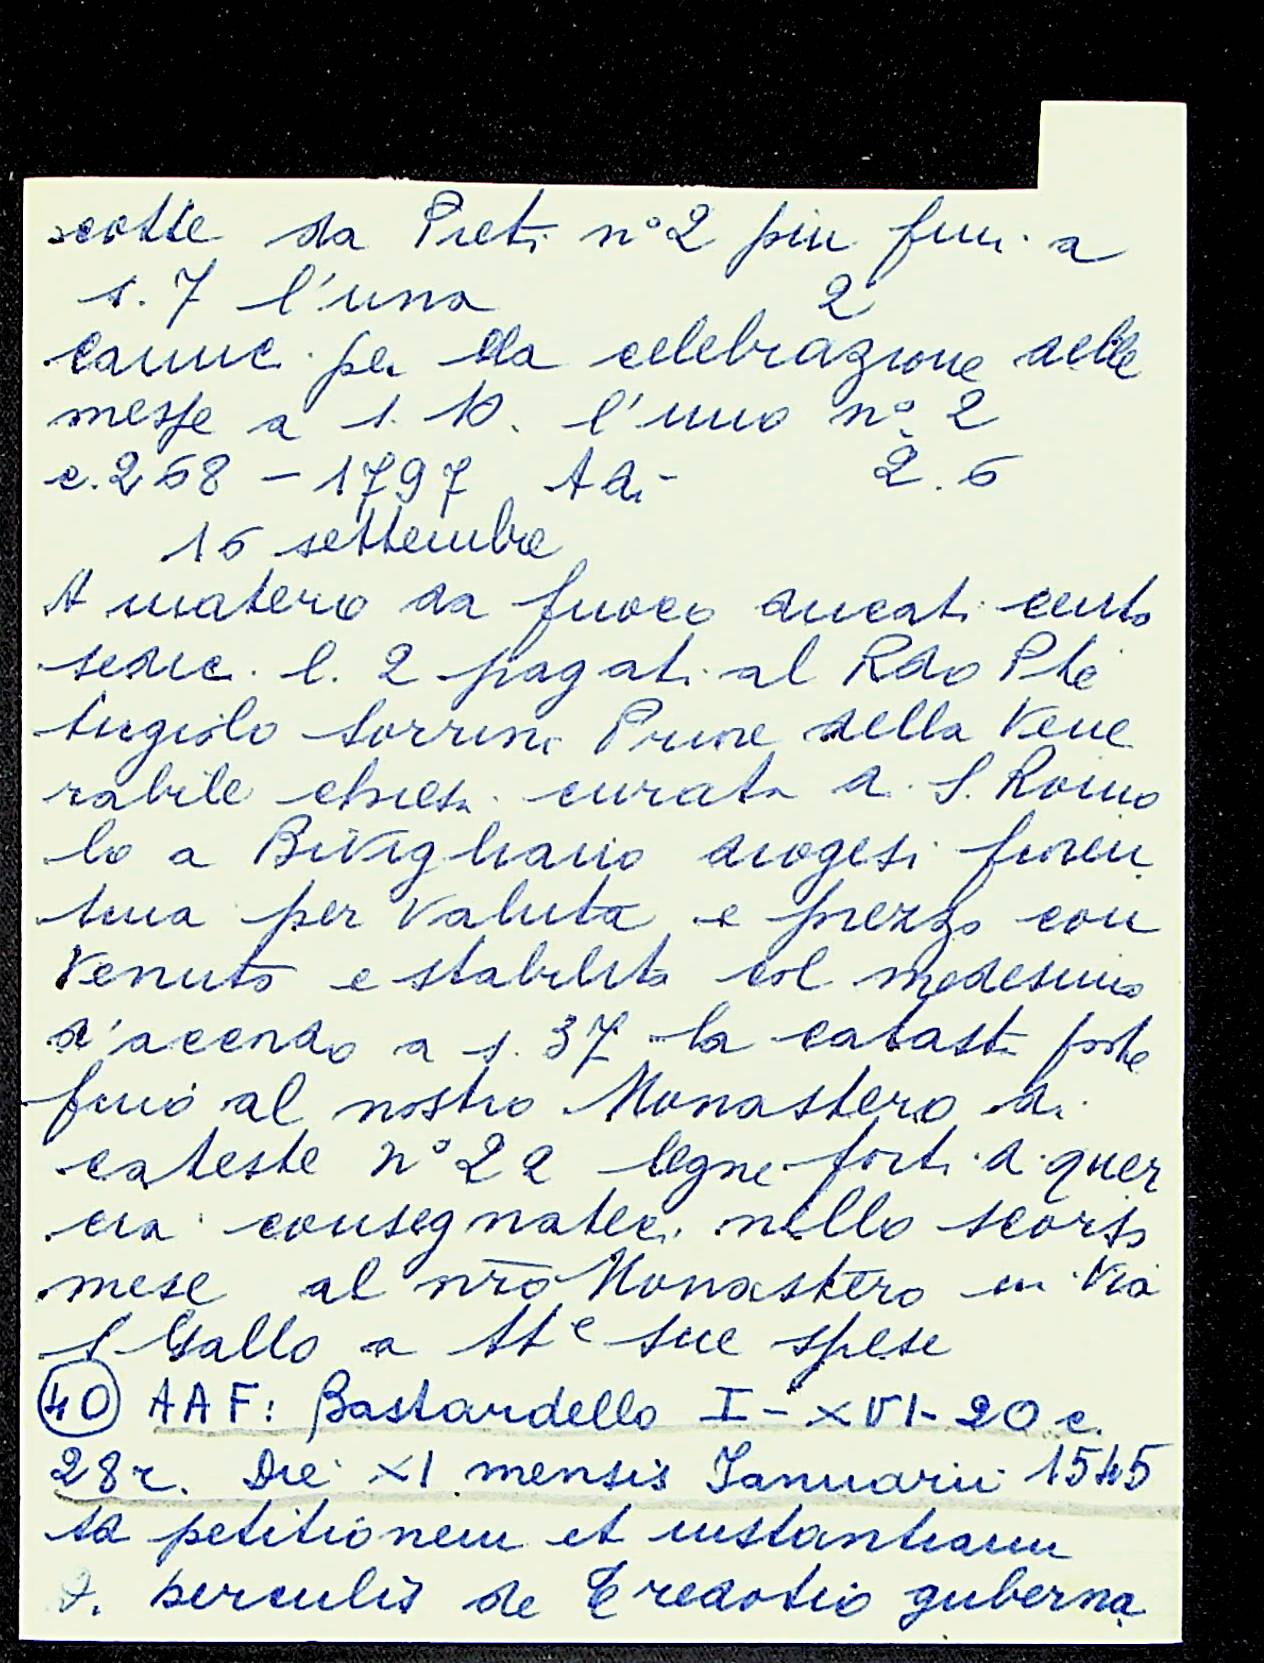 cotte da Preti n° 2 più fini a
s. 7 l'una 2
Camic. per la celebrazione delle
messe a s. 10. l'uno n° 2
c. 268 - 1797 Adi- 2. 6
16 settembre
A materio da fuoco ducati cento
sedic. l. 2 pagati al Rdo Pte
Angiolo Sorrini Priore della Vene
rabile chiesa curata di S. Romo
lo a Bivigliano diogesi fioren
tina per valuta e prezzo con
venuto e stabilito col medesimo
d'acendo a s. 37 la catasta poste
fino al nostro Monastero di
cateste n° 22 legne forti di quer
cia consegnateci nello scorso
mese al nro Monastero in Via
S Gallo a tte sue spese
40 AAF: Bastardello I-XVI-20 c.
28r. Die XI mensis Januarii 1545
ad petitionem et instantiam
D. herculis de Tredotio guberna